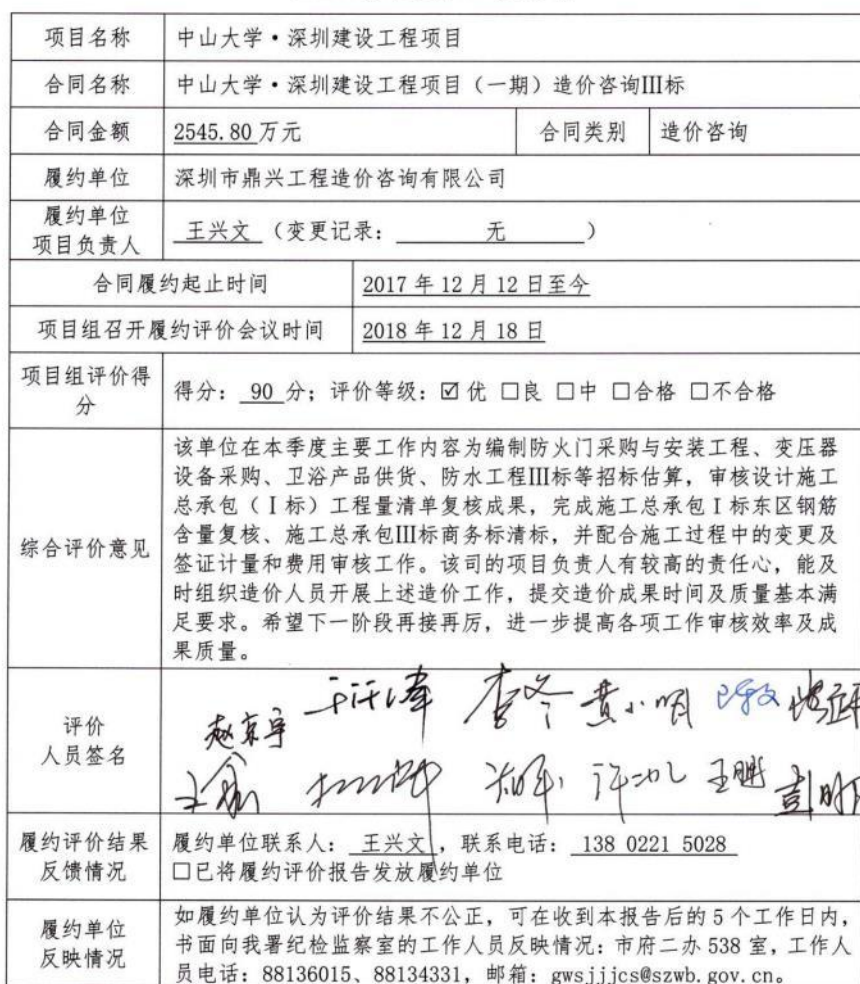 项目名称 中山大学·深圳建设工程项目
合同名称 中山大学·深圳建设工程项目（一期）造价咨询Ⅲ标
合同金额 2545.80 万元 合同类别 造价咨询
履约单位 深圳市鼎兴工程造价咨询有限公司
履约单位
项目负责人 王兴文 （变更记录： 无 ）
合同履约起止时间 2017 年 12 月 12 日至今
项目组召开履约评价会议时间 2018 年 12 月 18 日
项目组评价得
分 得分： 90 分；评价等级：☑优 □良 □中 □合格 □不合格
综合评价意见
该单位在本季度主要工作内容为编制防火门采购与安装工程、变压器
设备采购、卫浴产品供货、防水工程Ⅲ标等招标估算，审核设计施工
总承包（Ⅰ标）工程量清单复核成果，完成施工总承包Ⅰ标东区钢筋
含量复核、施工总承包Ⅲ标商务标清标，并配合施工过程中的变更及
签证计量和费用审核工作。该司的项目负责人有较高的责任心，能及
时组织造价人员开展上述造价工作，提交造价成果时间及质量基本满
足要求。希望下一阶段再接再厉，进一步提高各项工作审核效率及成
果质量。
评价
人员签名
赵京宇 李冬
履约评价结果
反馈情况
履约单位联系人： 王兴文 ，联系电话： 138 0221 5028
□已将履约评价报告发放履约单位
履约单位
反映情况
如履约单位认为评价结果不公正，可在收到本报告后的 5 个工作日内，
书面向我署纪检监察室的工作人员反映情况：市府二办 538 室，工作人
员电话：88136015、88134331，邮箱：gwsjjjcs@szwb.gov.cn。